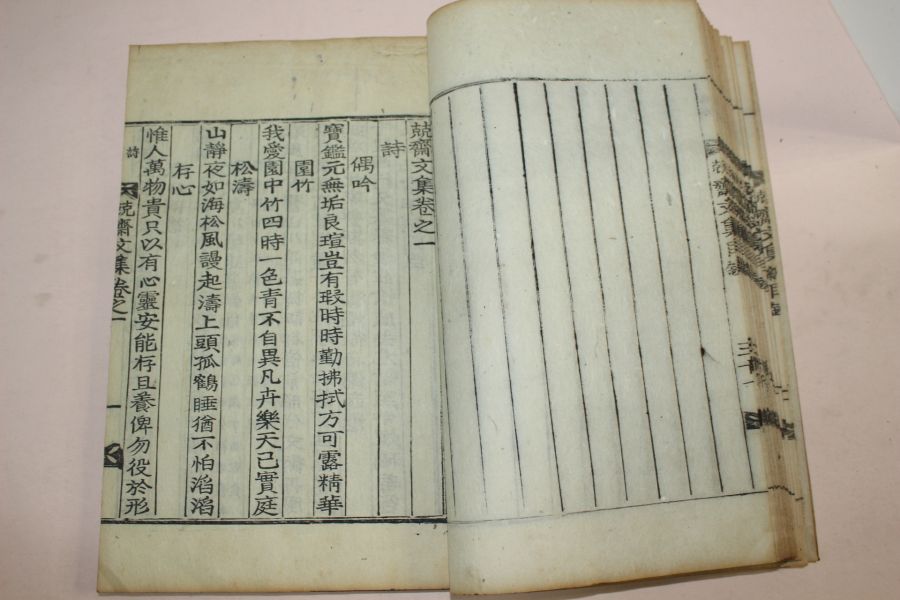 兢齋文集卷之一
詩
偶吟
寶鑑元無垢良瑄豈有瑕時時勤拂拭方可露精華
園竹
我愛園中竹四時一色青不自異凡卉樂天己實庭
松濤
山靜夜如海松風謾起濤上頭孤鶴睡猶不怕滔滔
存心
惟人萬物貴只以有心靈安能存且養俾勿役於形
詩
兢齋文集卷之一
一
兢齋文集目錄